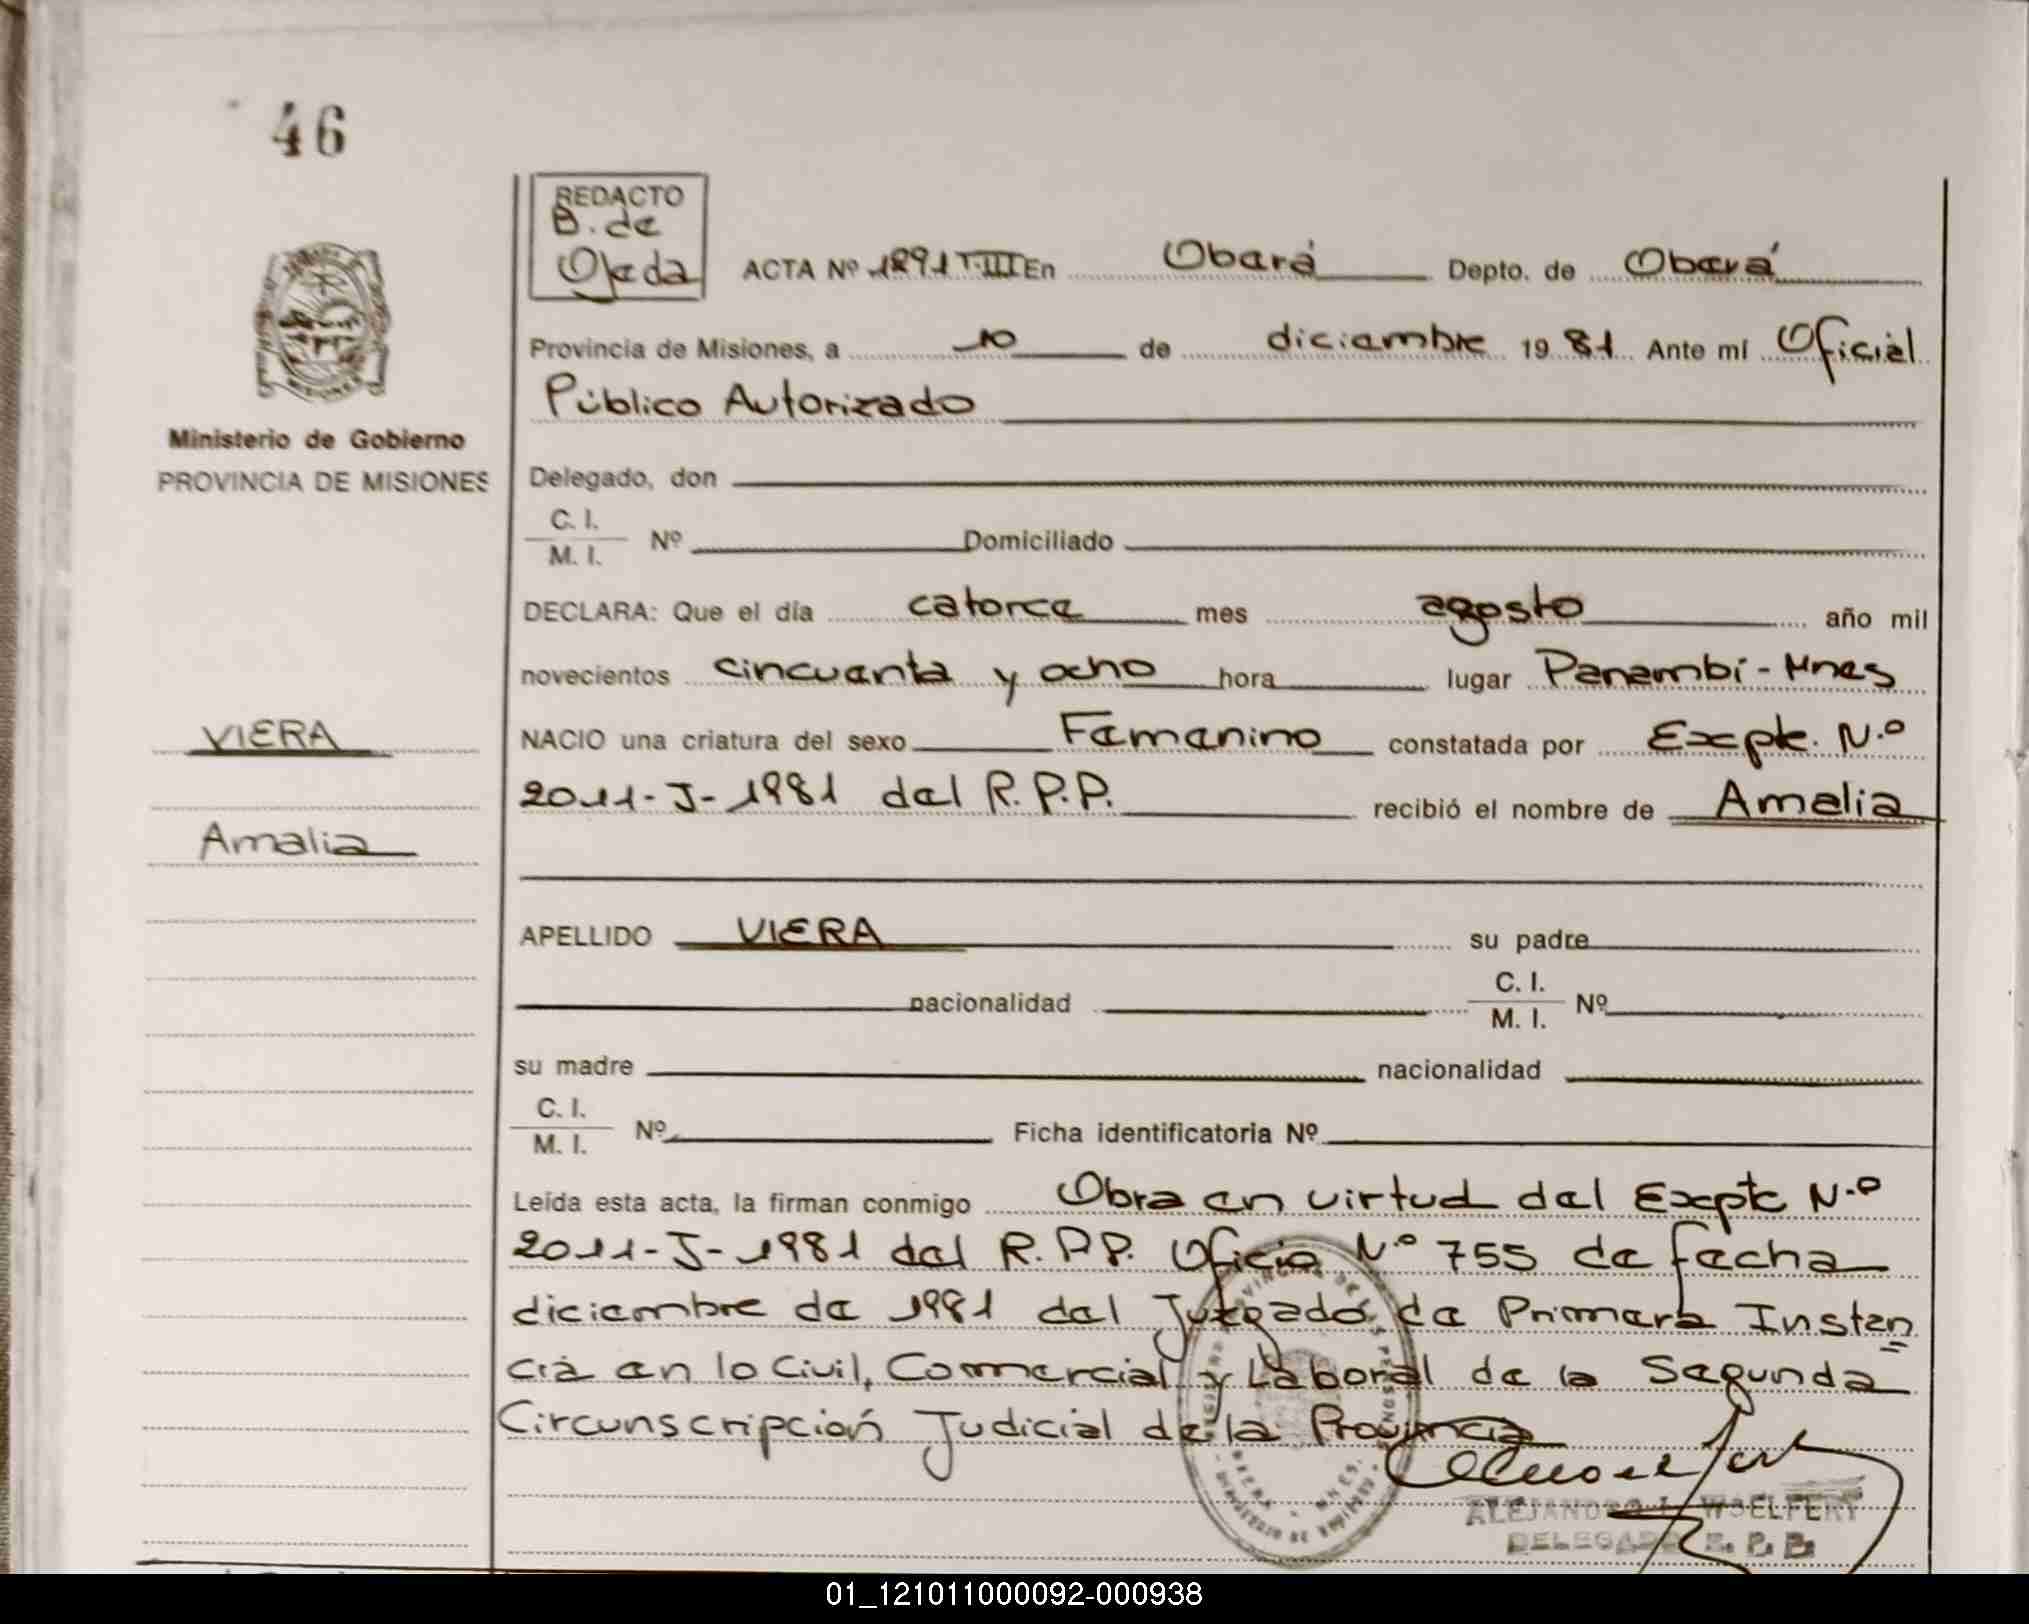 46
REDACTO
B. de
Ojeda
ACTA Nº 1891 T-III En Oberá Depto. de Oberá
Provincia de Misiones, a 10 de diciembre 19 81 Ante mí Oficial
Público Autorizado
Ministerio de Gobierno
PROVINCIA DE MISIONES
Delegado, don
C. I.
M. I.
Nº Domiciliado
DECLARA: Que el día catorce mes agosto año mil
novecientos cincuenta y ocho hora lugar Panambí - Mnes
VIERA
NACIO una criatura del sexo Femenino constatada por Expte. N.º
2011-J-1981 del R.P.P. recibió el nombre de Amelia
Amelia
APELLIDO VIERA su padre
nacionalidad C. I.
M. I. Nº
su madre nacionalidad
C. I.
M. I.
Nº Ficha identificatoria Nº
Leída esta acta, la firman conmigo Obra en virtud del Expte N.º
2011-J-1981 del R.P.P. Oficio N.º 755 de fecha
diciembre de 1981 del Juzgado de Primera Instan
cia en lo Civil, Comercial y Laboral de la Segunda
Circunscripción Judicial de la Provincia
DELEGADO R. P. P.
01_121011000092-000938